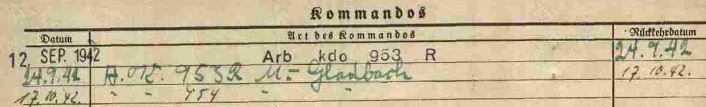 Kommandos
Datum Art des Kommandos Rückkehrdatum
12. SEP. 1942 Arb kdo 953 R 24.9.42
24.9.42 A.K. 953R M.-Gladbach 17.10.42.
17.10.42. " " 454 " "